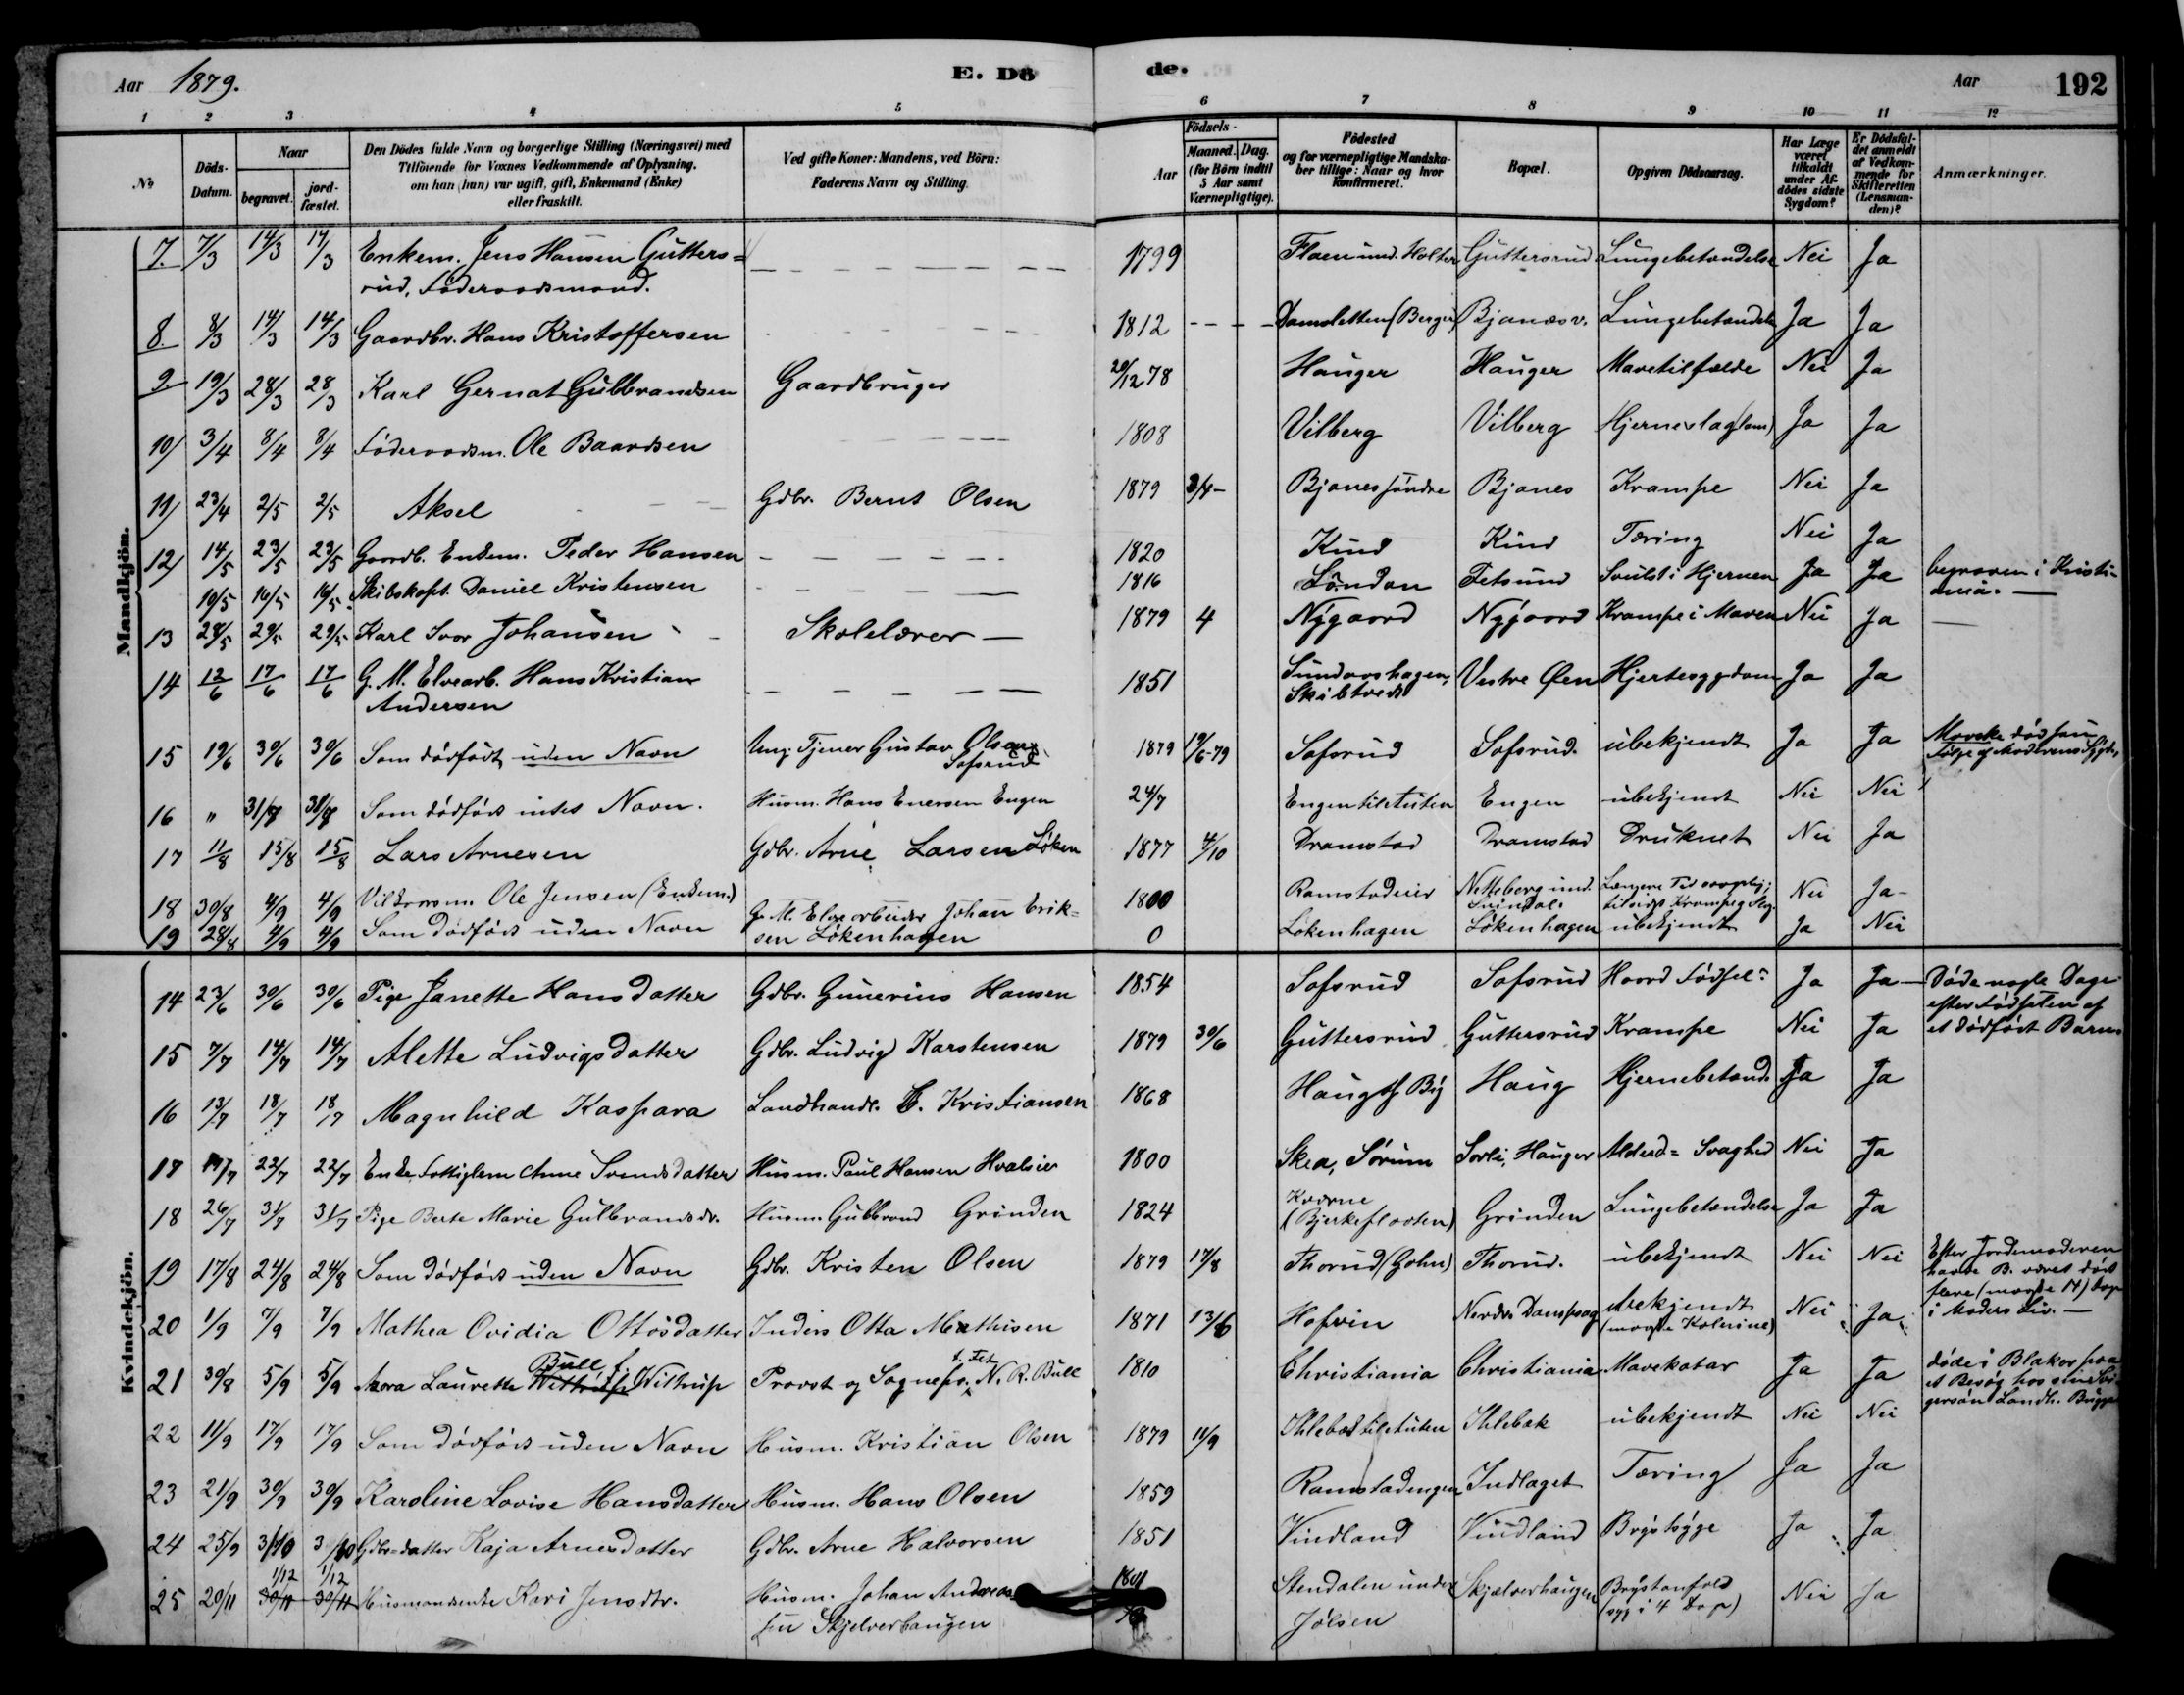 Aar 1879. E. Dö de. Aar 192
1 2 3 4 5 6 7 8 9 10 11 12
No Döds-Datum. Naar begravet. jord-fæstet. Den Dödes fulde Navn og borgerlige Stilling (Næringsvei) med Tilföiende for Voxnes Vedkommende af Oplysning, om han (hun) var ugift, gift, Enkemand (Enke) eller fraskilt. Ved gifte Koner: Mandens, ved Börn: Faderens Navn og Stilling. Aar Födsels- Maaned. Dag. (for Börn indtil 5 Aar samt Værnepligtige). Födested og for værnepligtige Mandskaber tillige: Naar og hvor konfirmeret. Bopæl. Opgiven Dödsaarsag. Har Læge været tilkaldt under Afdödes sidste Sygdom? Er Dödsfaldet anmeldt af Vedkommende for Skifteretten (Lensmanden)? Anmærkninger.
Mandkjön.
7. 7/3 14/3 14/3 Enkem. Jens Hansen Gutters= 1799 Flaen und. Holter Guttersrud Lungebetændelse Nei Ja
rud, Föderaadsmand.
8. 8/3 14/3 14/3 Gaardbr. Hans Kristoffersen 1812 Damsletten (Berger) Bjanæs v. Lungebetændelse Ja Ja
9 19/3 28/3 28/3 Karl Gernat Gulbrandsen Gaardbruger 29/12 78 Hauger Hauger Mavetilfælde Nei Ja
10 3/4 8/4 8/4 Föderaadsm. Ole Baardsen 1808 Vilberg Vilberg Hjerneslag (lam) Ja Ja
11 23/4 2/5 2/5 Aksel Gdbr. Bernt Olsen 1879 3/4 Bjanes söndre Bjanes Krampe Nei Ja
12 14/5 23/5 23/5 Gaardb. Enkem. Peder Hansen 1820 Kind Kind Tæring Nei Ja
10/5 16/5 16/5 Skibskapt. Daniel Kristensen 1816 London Fetsund Svulst i Hjernen Ja Ja begraven i Kristi-
ania.
13 24/5 29/5 29/5 Karl Ivar Johansen Skolelærer 1879 4 Nygaard Nygaard Krampe i Maven Nei Ja
14 12/6 17/6 17/6 G. M. Elvearb. Hans Kristian 1851 Sundavshagen, Vestre Øen Hjertesygdom Ja Ja
Andersen Skibtvedt
15 19/6 30/6 30/6 Søn dødfødt uden Navn Ung. Tjener Gustav Olsen 1879 19/6-79 Sofsrud Sofsrud. ubekjendt Ja Ja Maaske død som
Sofsrud Følge af Moderens Sygd.
16 " 31/7 31/7 Søn dødfødt intet Navn. Husm. Hans Enersen Engen 24/7 Engen tilstuten Engen ubekjendt Nei Nei
17 11/8 15/8 15/8 Lars Arnesen Gdbr. Arne Larsen Löken 1877 4/10 Dramstad Dramstad Druknet Nei Ja
18 30/8 4/9 4/9 Vilkaarsm. Ole Jensen (Enkem.) 1800 Ramstadeier Netteberg und. Længere Tid Nei Ja
tilsidst Krampe
19 28/8 4/9 4/9 Søn dødfødt uden Navn G. M. Elvearbeider Johan Erik= 0 Lökenhagen Lökenhagen ubekjendt Ja Nei
sen Lökenhagen
Kvindekjön.
14 23/6 30/6 30/6 Pige Janette Hansdatter Gdbr. Gunerius Hansen 1854 Sofsrud Sofsrud Haard Födsel Ja Ja Døde nogle Dage
efter Födselen af
et dødfødt Barn
15 7/7 14/7 14/7 Alette Ludvigsdatter Gdbr. Ludvig Karstensen 1879 30/6 Guttersrud Guttersrud Krampe Nei Ja
16 13/7 18/7 18/7 Magnhild Kaspara Landhandl. C. Kristiansen 1868 Haug Haug Hjernebetænd. Ja Ja
17 17/7 22/7 22/7 Enke Fattiglem Anne Svendsdatter Husm. Paul Hansen Hvalsier 1800 Skea, Sörum Sorli, Hauger Alderd= Svaghed Nei Ja
18 26/7 31/7 31/7 Pige Berte Marie Gulbrandsdr. Husm. Gulbrand Grinden 1824 Kværne Grinden Lungebetændelse Ja Ja
(Bjerkefloten)
19 17/8 24/8 24/8 Søn dødfødt uden Navn Gdbr. Kristen Olsen 1879 17/8 Thorud (Gohn) Thorud. ubekjendt Nei Nei Efter Jordemoderen
havde B. været død
flere (maaske 14) Dage
i Moders Liv.
20 1/9 7/9 7/9 Mathea Ovidia Ottosdatter Inders Otto Mathisen 1871 13/6 Hofvin Nerdr. Dampsag ubekjendt Nei Ja
(maaske Kolerine)
21 30/8 5/9 5/9 Laurette Bull f. Wiltrup Provst og Sognepr. t. Fet N. R. Bull 1810 Christiania Christiania Mavekatar Ja Ja døde i Blaker paa
et Besøg hos sin Svi-
gersøn Landh. Bugge
22 11/9 17/9 17/9 Søn dødfødt uden Navn Husm. Kristian Olsen 1879 11/9 Ihlebæk tilstuten Ihlebæk ubekjendt Nei Nei
23 21/9 30/9 30/9 Karoline Lovise Hansdatter Husm. Hans Olsen 1859 Ramstadengen Indlaget Tæring Ja Ja
24 25/9 3/10 3/10 Gdbr=datter Kaja Arnesdatter Gdbr. Arne Halvorsen 1851 Vindland Vindland Brystsyge Ja Ja
1/12 1/12
25 20/11 30/11 30/11 Husmandsenke Kari Jensdtr. Husm. Johan Andrea 1801 Stendalen under Skjælverhaugen Brystanfald Nei Ja
sen Skjelverhaugen Jölsen (syg i 4 Dage)